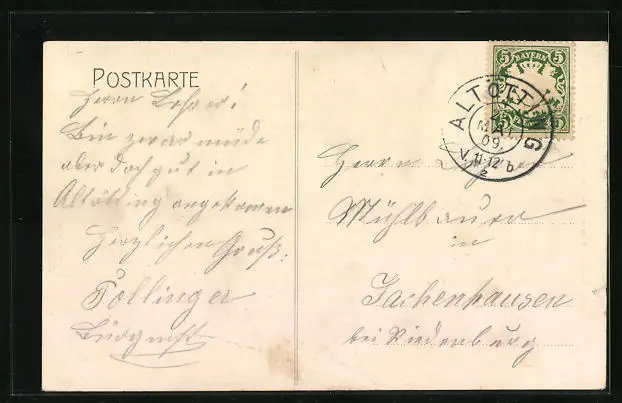 POSTKARTE
Herrn Lehrer!
Bin zwar müde
aber doch gut in
Altötting angekommen
Herzlichen Gruß:
Pollinger
5 BAYERN 5
5 5
ALTÖTTING
MAI
09.
V. 11-12 b
2
Herrn Lehrer
Mühlbauer
in
Jachenhausen
bei Riedenburg